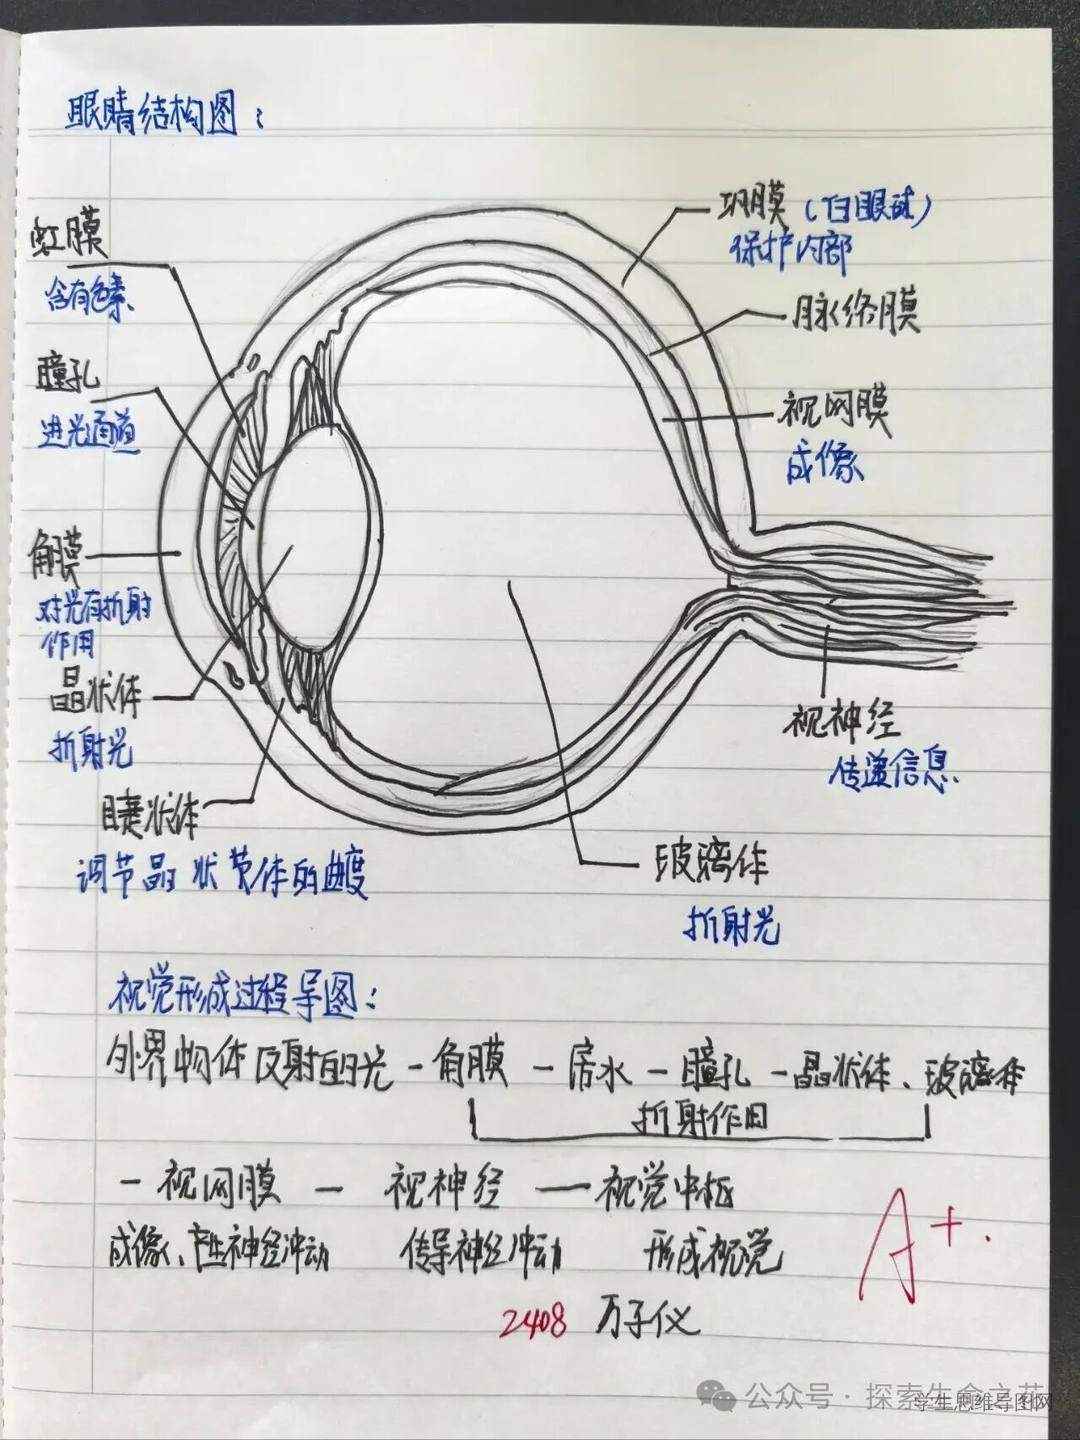 眼睛结构图：
虹膜
含有色素
瞳孔
进光通道
角膜
对光有折射
作用
晶状体
折射光
睫状体
调节晶状体的曲度
巩膜（白眼球）
保护内部
脉络膜
视网膜
成像
视神经
传递信息
玻璃体
折射光
视觉形成过程导图：
外界物体反射的光-角膜-房水-瞳孔-晶状体、玻璃体
折射作用
-视网膜-视神经-视觉中枢
成像、产生神经冲动 传导神经冲动 形成视觉
A+.
2408 万子仪
公众号·探索生命之花
学生思维导图网